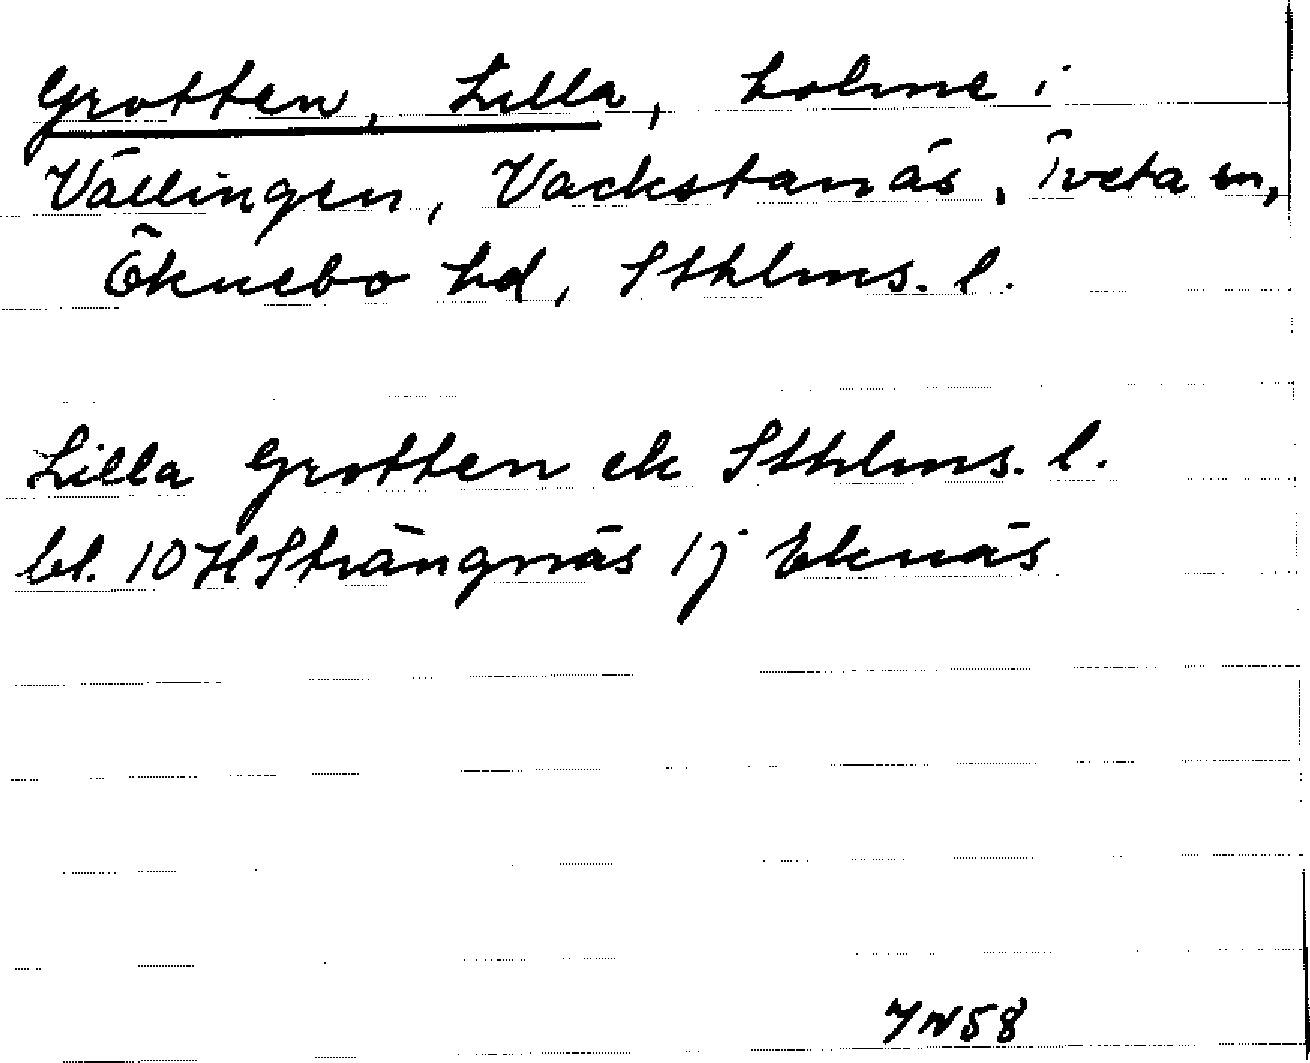 Grotten, Lilla, holme i
Vällingen, Vackstanäs, Tveta sn,
Öknebo hd, Sthlms. l.
Lilla Grotten ek Sthlms. l.
bl. 10 H Strängnäs 1j Eknäs
YN58